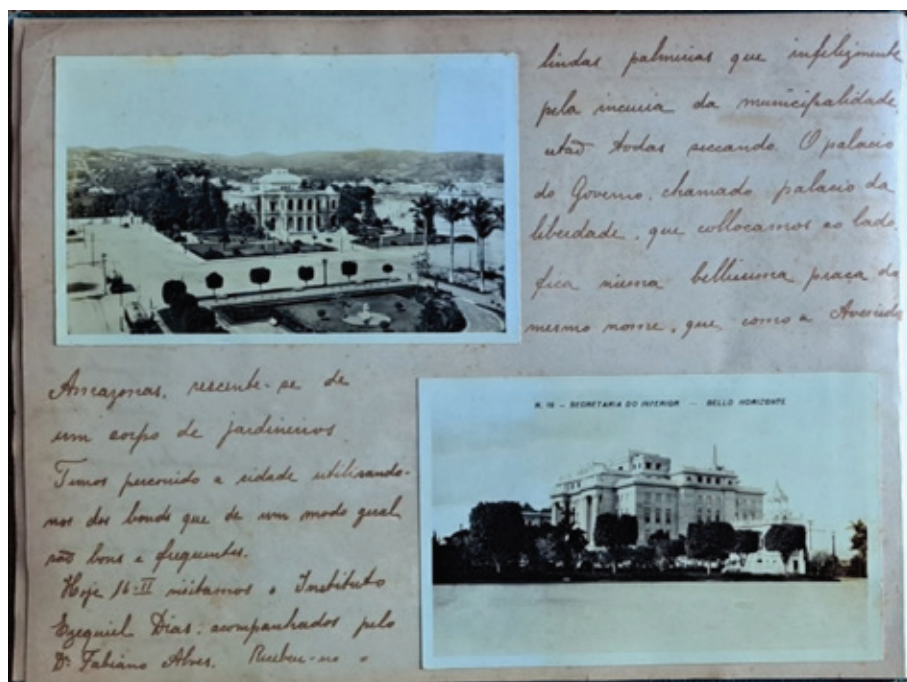 lindas palmeiras que infelizmente
pela incuria da municipalidade
estaõ todas seccando. O palacio
do Governo, chamado palacio da
liberdade, que collocamos ao lado,
fica numa bellissima praça do
mesmo nome, que, como a Avenida
Amazonas, rescente-se de
um corpo de jardineiros
Temos percorrido a cidade utilisando-
nos dos bonds que de um modo geral
saõ bons e frequentes.
Hoje 16-II visitamos o Instituto
Ezequiel Dias, acompanhados pelo
Dr. Fabiano Alves. Recebeu-no o
N. 16 — SECRETARIA DO INTERIOR — BELLO HORIZONTE